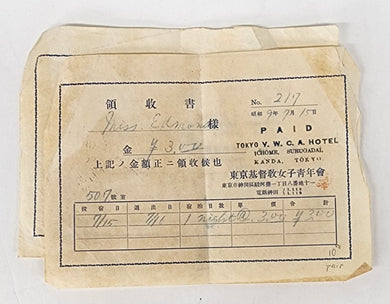 領收書
No. 217
Miss Edmonds 樣
昭和 9年 7月 15日
PAID
金 ¥3.00
TOKYO Y. W. C. A. HOTEL
1CHOME, SURUGADAI,
KANDA, TOKYO
上記ノ金額正ニ領收候也
東京基督敎女子靑年會
東京市神田區駿河臺一丁目八番地十一
電話神田
507號室
投宿日 退出日 宿泊日數 單價 合計
7/15 7/16 1 night @ 3.00 ¥3.00
10